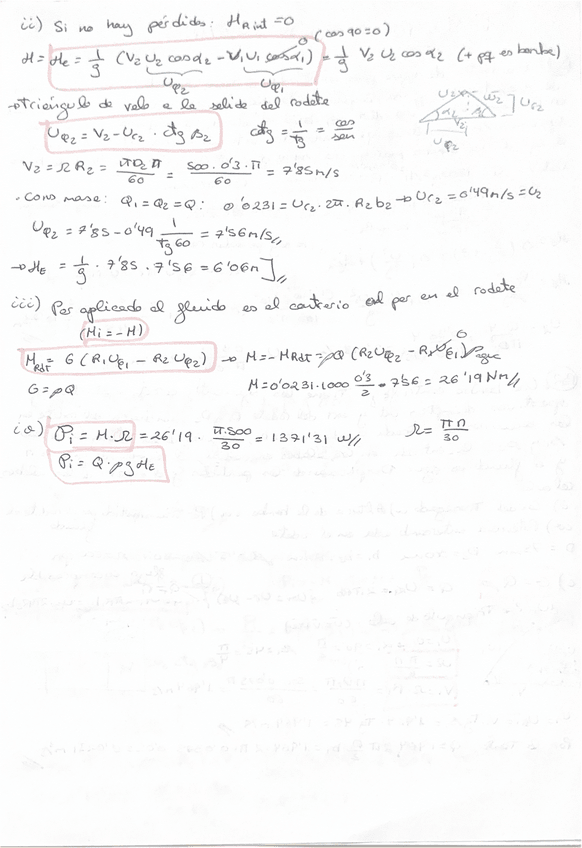 ii) Si no hay pérdidas: H_R int = 0
(cos 90 = 0)
H = H_E = 1/g (V₂ U₂ cos α₂ - V₁ U₁ cos α₁) = 1/g V₂ U₂ cos α₂ (+ pq es bomba)
0
Uφ₂ Uφ₁
→ triángulo de velo a la salida del rodete
Uφ₂ = V₂ - Ur₂ · ctg β₂ ctg = 1/tg = cos/sen
U₂ ω₂ Ur₂ α₂ V₂ Uφ₂
V₂ = Ω R₂ = π D₂ n / 60 = 500 · 0'3 · π / 60 = 7'85 m/s
- Cons masa: Q₁ = Q₂ = Q: 0'0231 = Ur₂ · 2π · R₂ b₂ → Ur₂ = 0'49 m/s = U₂
Uφ₂ = 7'85 - 0'49 1/tg 60 = 7'56 m/s //
→ H_E = 1/g · 7'85 · 7'56 = 6'06 m ] //
iii) Par aplicado al fluido es al contrario al par en el rodete
(Mi = -M)
M_Rdt = G (R₁ Uφ₁ - R₂ Uφ₂) → M = -M_Rdt = ρQ (R₂ Uφ₂ - R₁ Uφ₁) ρ agua
0
G = ρQ M = 0'0231 · 1000 0'3/2 · 7'56 = 26'19 Nm //
iv) Pi = M · Ω = 26'19 · π · 500 / 30 = 1371'31 W // Ω = πn/30
Pi = Q · ρ g H_E